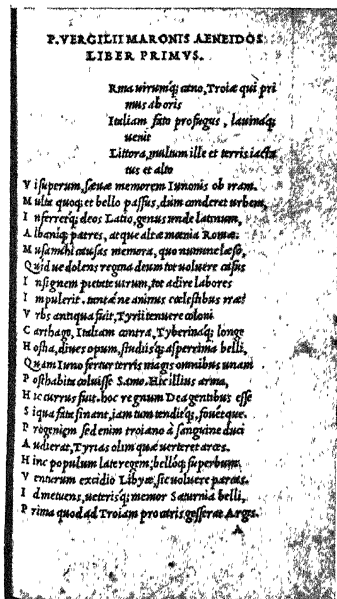 P. VERGILII MARONIS AENEIDOS
LIBER PRIMVS.
Rma uirumq; cano, Troiæ qui pri
mus ab oris
Italiam fato profugus, lauinaq;
uenit
Littora, multum ille et terris iacta
tus et alto
V i superum, sæuæ memorem Iunonis ob iram.
M ulta quoq; et bello passus, dum conderet urbem,
I nferretq; deos Latio, genus unde latinum,
A lbaniq; patres, atque altæ mœnia Romæ.
M usa mihi causas memora, quo numine læso,
Q uid ue dolens regina deum tot uoluere casus
I nsignem pietate uirum, tot adire labores
I mpulerit. tantæ ne animis cœlestibus iræ?
V rbs antiqua fuit, Tyrii tenuere coloni
C arthago, Italiam contra, Tyberinaq; longe
H ostia, diues opum, studiisq; asperrima belli,
Q uam Iuno fertur terris magis omnibus unam
P osthabita coluisse Samo. Hic illius arma,
H ic currus fuit. hoc regnum Dea gentibus esse
S i qua fata sinant, iam tum tenditq;, fouetque.
P rogeniem sed enim troiano à sanguine duci
A udierat, Tyrias olim quæ uerteret arces.
H inc populum late regem; bellóq; superbum
V enturum excidio Libyæ; sic uoluere parcas.
I d metuens, ueterisq; memor Saturnia belli,
P rima quod ad Troiam pro caris gesserat Argis.
A